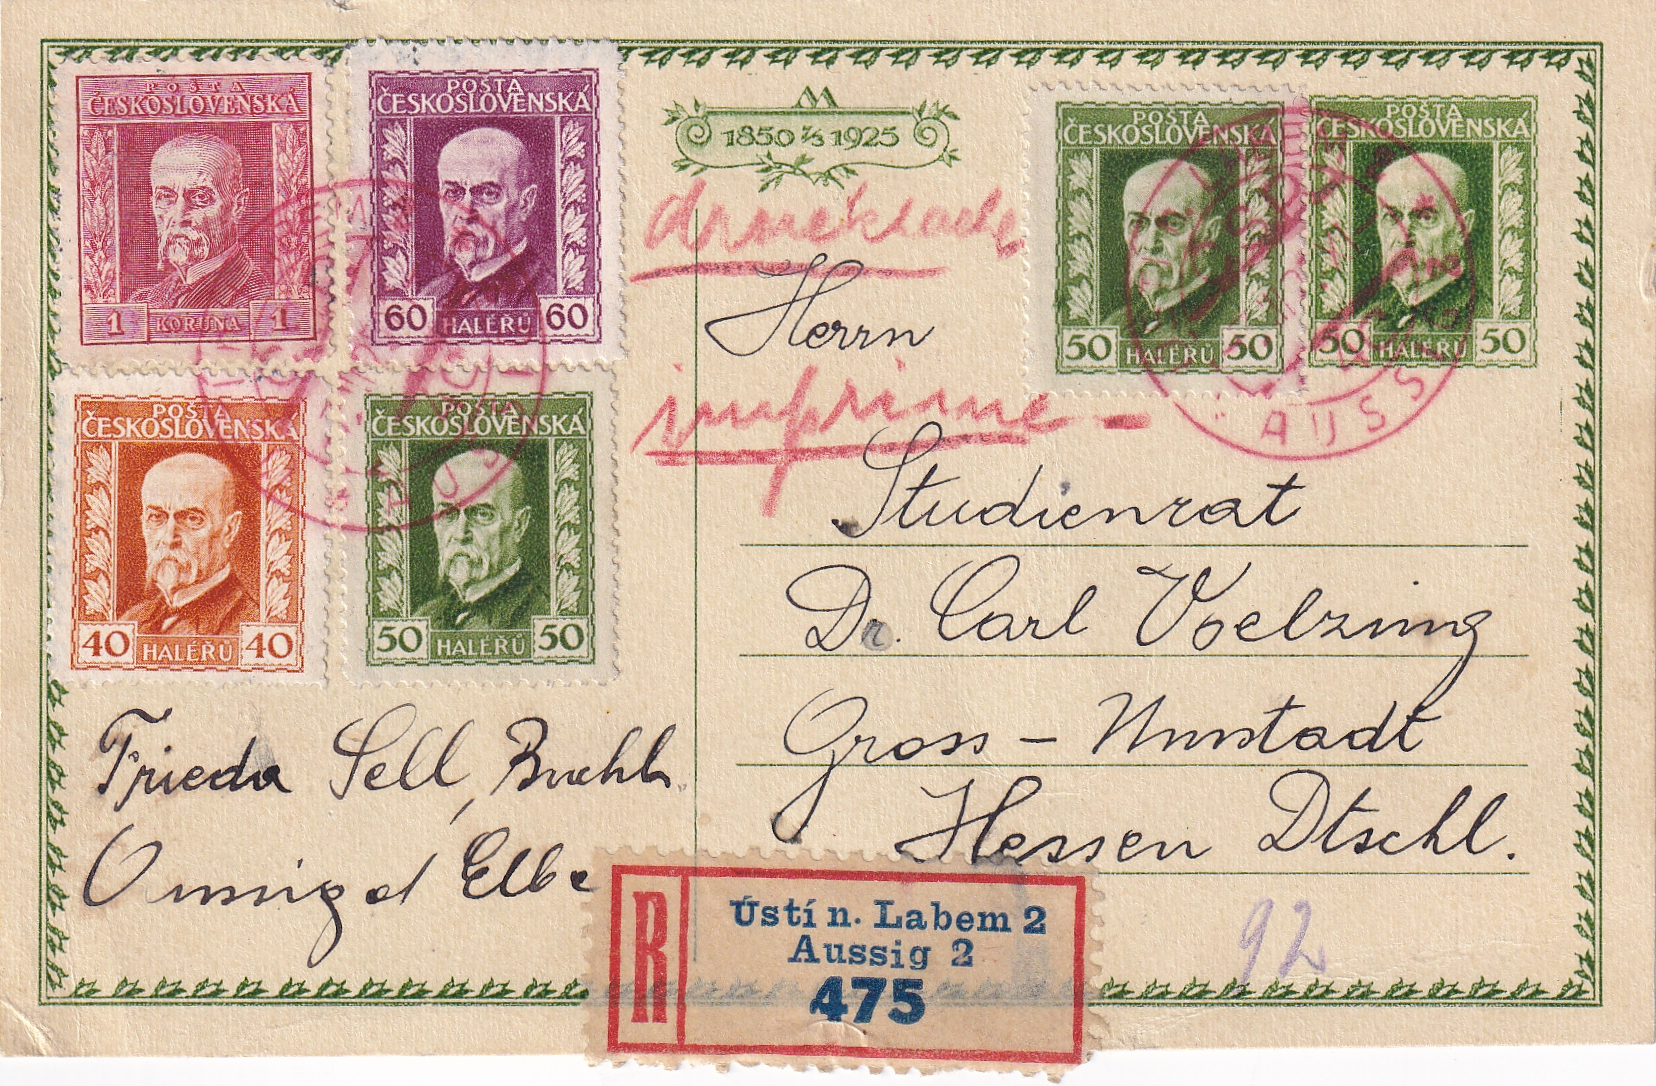 POŠTA
ČESKOSLOVENSKÁ
1 KORUNA 1
POŠTA
ČESKOSLOVENSKÁ
60 HALÉŘŮ 60
POŠTA
ČESKOSLOVENSKÁ
40 HALÉŘŮ 40
POŠTA
ČESKOSLOVENSKÁ
50 HALÉŘŮ 50
M
1850 7/3 1925
POŠTA
ČESKOSLOVENSKÁ
50 HALÉŘŮ 50
POŠTA
ČESKOSLOVENSKÁ
50 HALÉŘŮ 50
AUSS
drucksache
Herrn
imprime -
Studienrat
Dr. Carl Voelzing
Gross - Umstadt
Hessen Dtschl.
Frieda Sell, Buchh.
Aussig a/ Elbe
R
Ústí n. Labem 2
Aussig 2
475
92